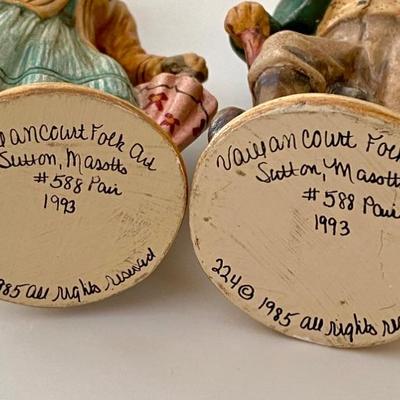 ancourt Folk Art
Sutton, Masstts
#588 Pair
1993
1985 all rights reserved
Vaillancourt Folk
Sutton, Masstts
#588 Pair
1993
224 © 1985 all rights re